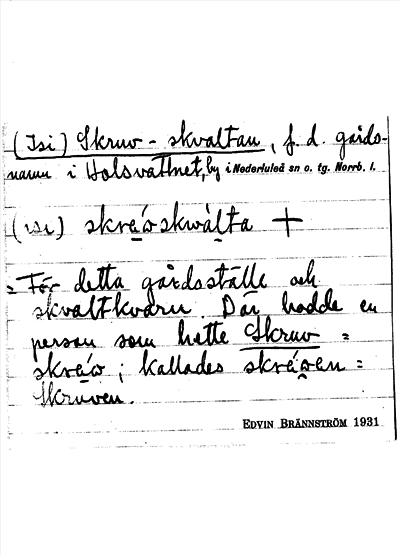 (Isi) Skruv-skvaltan, f. d. gårds-
namn i Holsvattnet, by i Nederluleå sn o. tg. Norrb. l.
(ısi) skre̬´o̬skwàl̬ta +
= För detta gårdsställe och
skvaltkvarn. Där hadde en
person som hette Skruv =
skre̬´o̬ ; kallades skre̬´o̬en =
Skruven.
EDVIN BRÄNNSTRÖM 1931